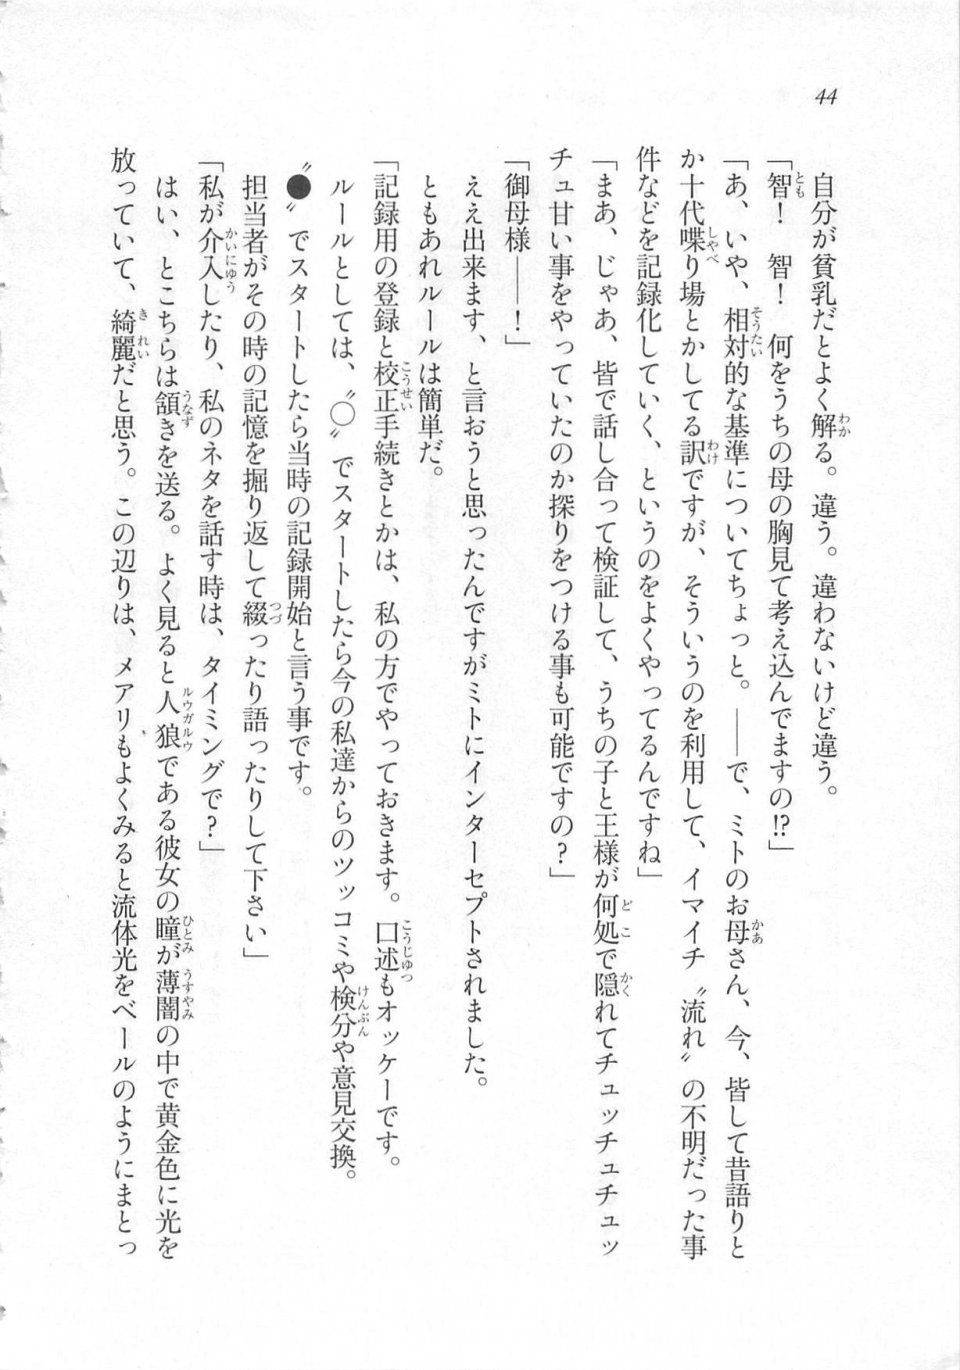 44
自分が貧乳だとよく解る。違う。違わないけど違う。
「智！　智！　何をうちの母の胸見て考え込んでますの!?」
「あ、いや、相対的な基準についてちょっと。――で、ミトのお母さん、今、皆して昔語りと
か十代喋り場とかしてる訳ですが、そういうのを利用して、イマイチ〝流れ〟の不明だった事
件などを記録化していく、というのをよくやってるんですね」
「まあ、じゃあ、皆で話し合って検証して、うちの子と王様が何処で隠れてチュッチュチュッ
チュ甘い事をやっていたのか探りをつける事も可能ですの？」
「御母様――！」
ええ出来ます、と言おうと思ったんですがミトにインターセプトされました。
ともあれルールは簡単だ。
「記録用の登録と校正手続きとかは、私の方でやっておきます。口述もオッケーです。
ルールとしては、〝○〟でスタートしたら今の私達からのツッコミや検分や意見交換。
〝●〟でスタートしたら当時の記録開始と言う事です。
担当者がその時の記憶を掘り返して綴ったり語ったりして下さい」
「私が介入したり、私のネタを話す時は、タイミングで？」
はい、とこちらは頷きを送る。よく見ると人狼である彼女の瞳が薄闇の中で黄金色に光を
放っていて、綺麗だと思う。この辺りは、メアリもよくみると流体光をベールのようにまとっ